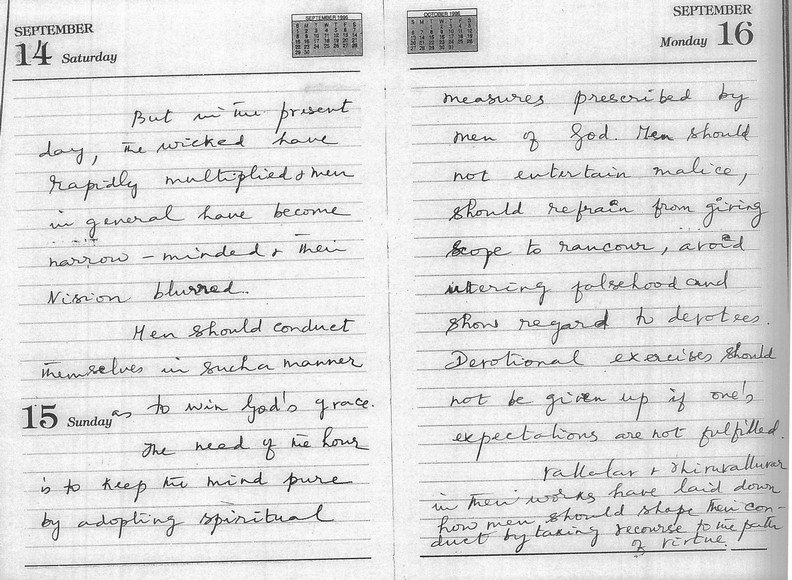 SEPTEMBER
14 Saturday
SEPTEMBER 1996
But in the present
day, the wicked have
rapidly multiplied & men
in general have become
narrow - minded & their
Vision blurred.
Men should conduct
themselves in such a manner
15 Sunday
as to win God's grace.
The need of the hour
is to keep the mind pure
by adopting spiritual
OCTOBER 1996
SEPTEMBER
Monday 16
measures prescribed by
men of God. Men should
not entertain malice,
should refrain from giving
scope to rancour, avoid
uttering falsehood and
show regard to devotees.
Devotional exercises should
not be given up if one's
expectations are not fulfilled.
Vallalar & Thiruvalluvar
in their works have laid down
how men should shape their con-
duct by taking recourse to the path
of virtue.